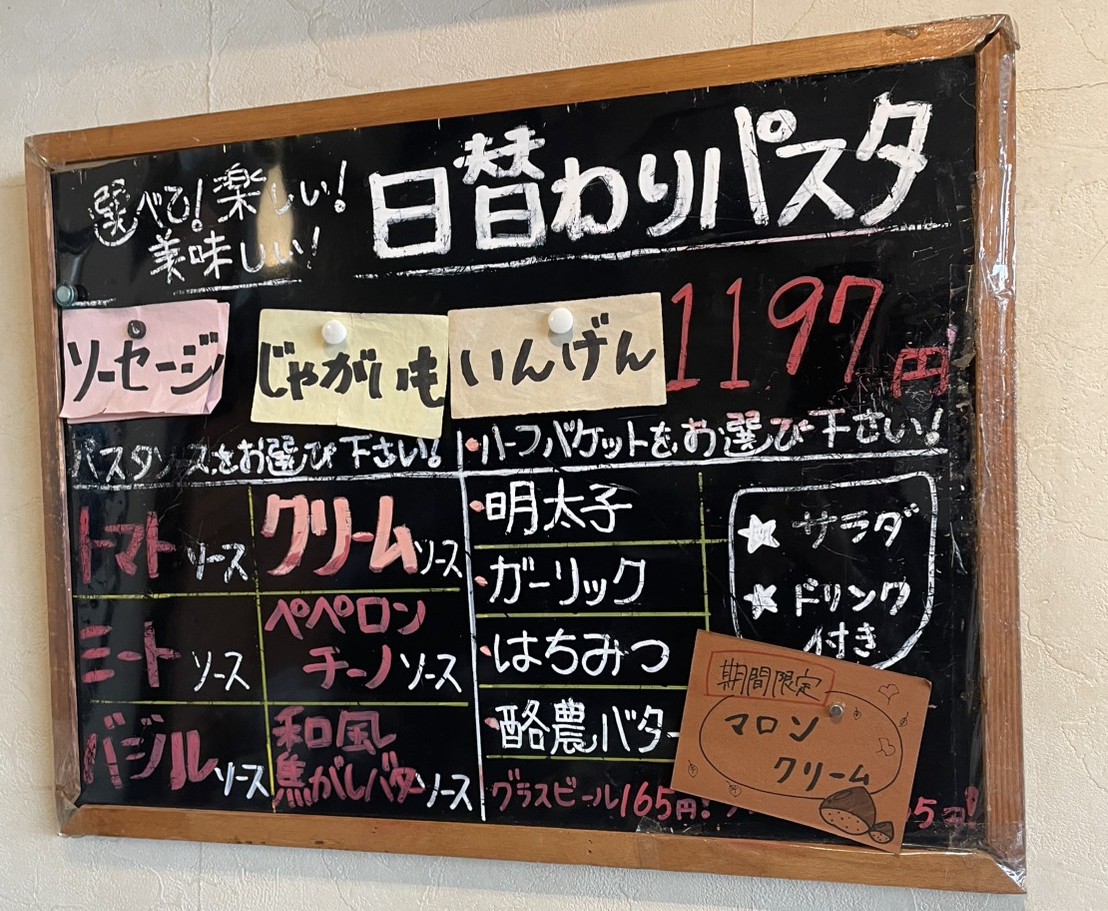 選べて!楽しい!
美味しい!
日替わりパスタ
ソーセージ
じゃがいも
いんげん
1197円
パスタソースをお選び下さい!
トマトソース
クリームソース
ミートソース
ペペロン
チーノソース
バジルソース
和風
焦がしバターソース
・ハーフバケットをお選び下さい!
・明太子
・ガーリック
・はちみつ
・酪農バター
★サラダ
★ドリンク
付き
期間限定
マロン
クリーム
グラスビール165円!